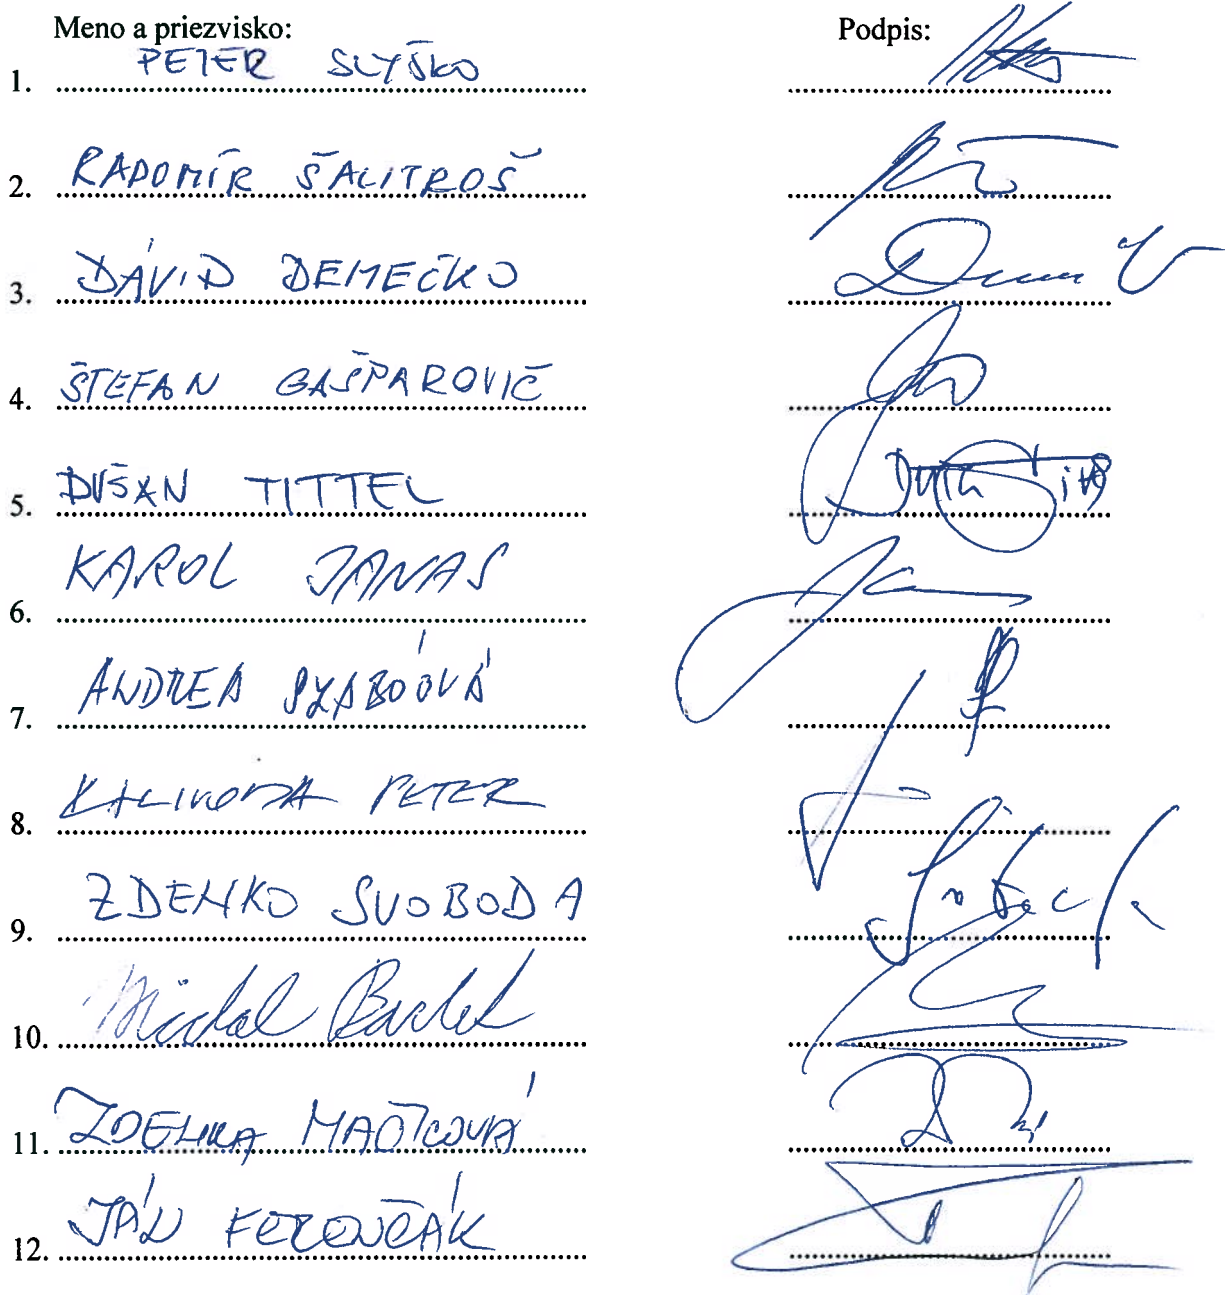 Meno a priezvisko: Podpis:
1. PETER SLYŠKO
2. RADOMÍR ŠALITROŠ
3. DÁVID DEMEČKO
4. ŠTEFAN GAŠPAROVIČ
5. DUŠAN TITTEL
6. KAROL JANAS
7. ANDREA SZABÓOVÁ
8. KALIVODA PETER
9. ZDENKO SVOBODA
10. Michal Bartek
11. ZDENKA
12. JÁN FERENČÁK